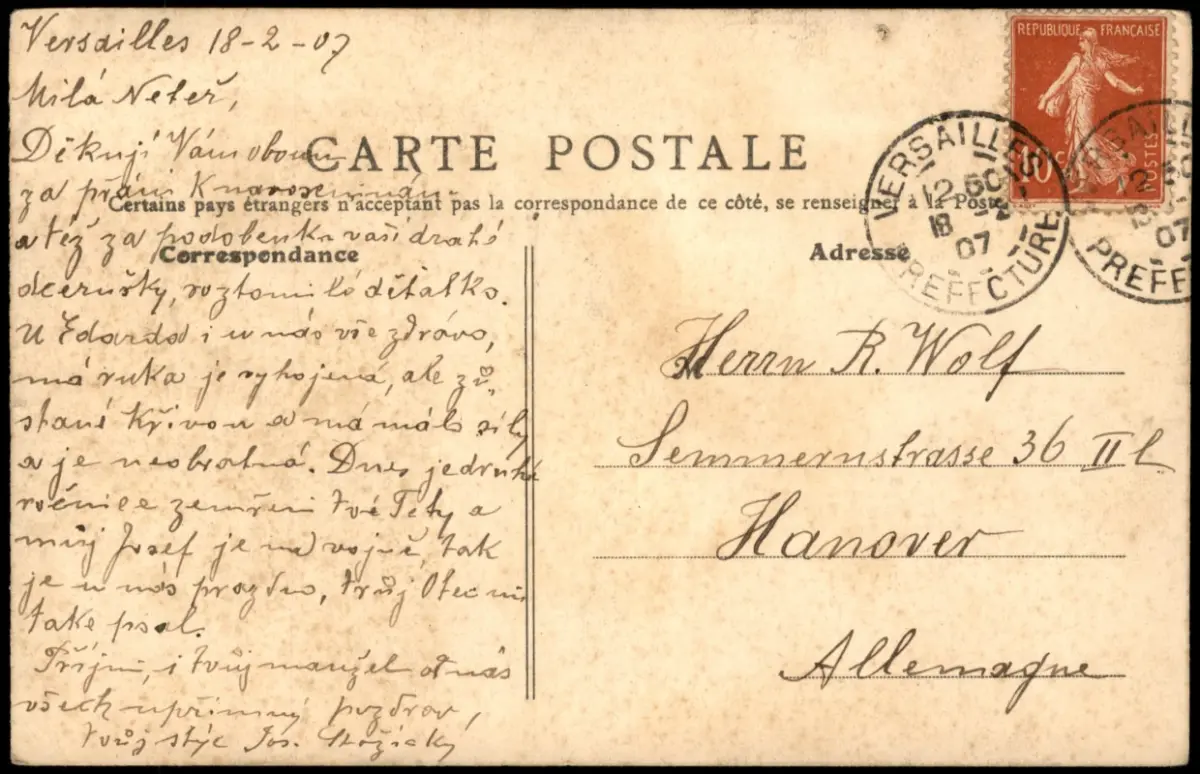 Versailles 18-2-07
Milá Neteř,
Děkuji Vám oboum
za přání K narozeninám
a též za podobenku vaší drahé
dcerušky, roztomilé děťátko.
U Edarda i u nás vše zdrávo,
má ruka je vyhojená, ale zů,,
stané Křivou a má málo síly
a je neobratná. Dnes je druhé
ročnice zemření tvé Tety a
můj Josef je na vojně, tak
je u nás prázdno, tvůj Otec mi
také psal.
Přijmi, i tvůj manžel od nás
všech upřímný pozdrav,
tvůj stýc Jos.
CARTE POSTALE
Certains pays étrangers n'acceptant pas la correspondance de ce côté, se renseigner à la Poste
Correspondance
Adresse
REPUBLIQUE FRANÇAISE
10 c
POSTES
VERSAILLES
12 50
18
07
PREFECTURE
VERSAILLES
12
07
PREFE
Herrn R. Wolf
Semmernstrasse 36 II l
Hanover
Allemagne